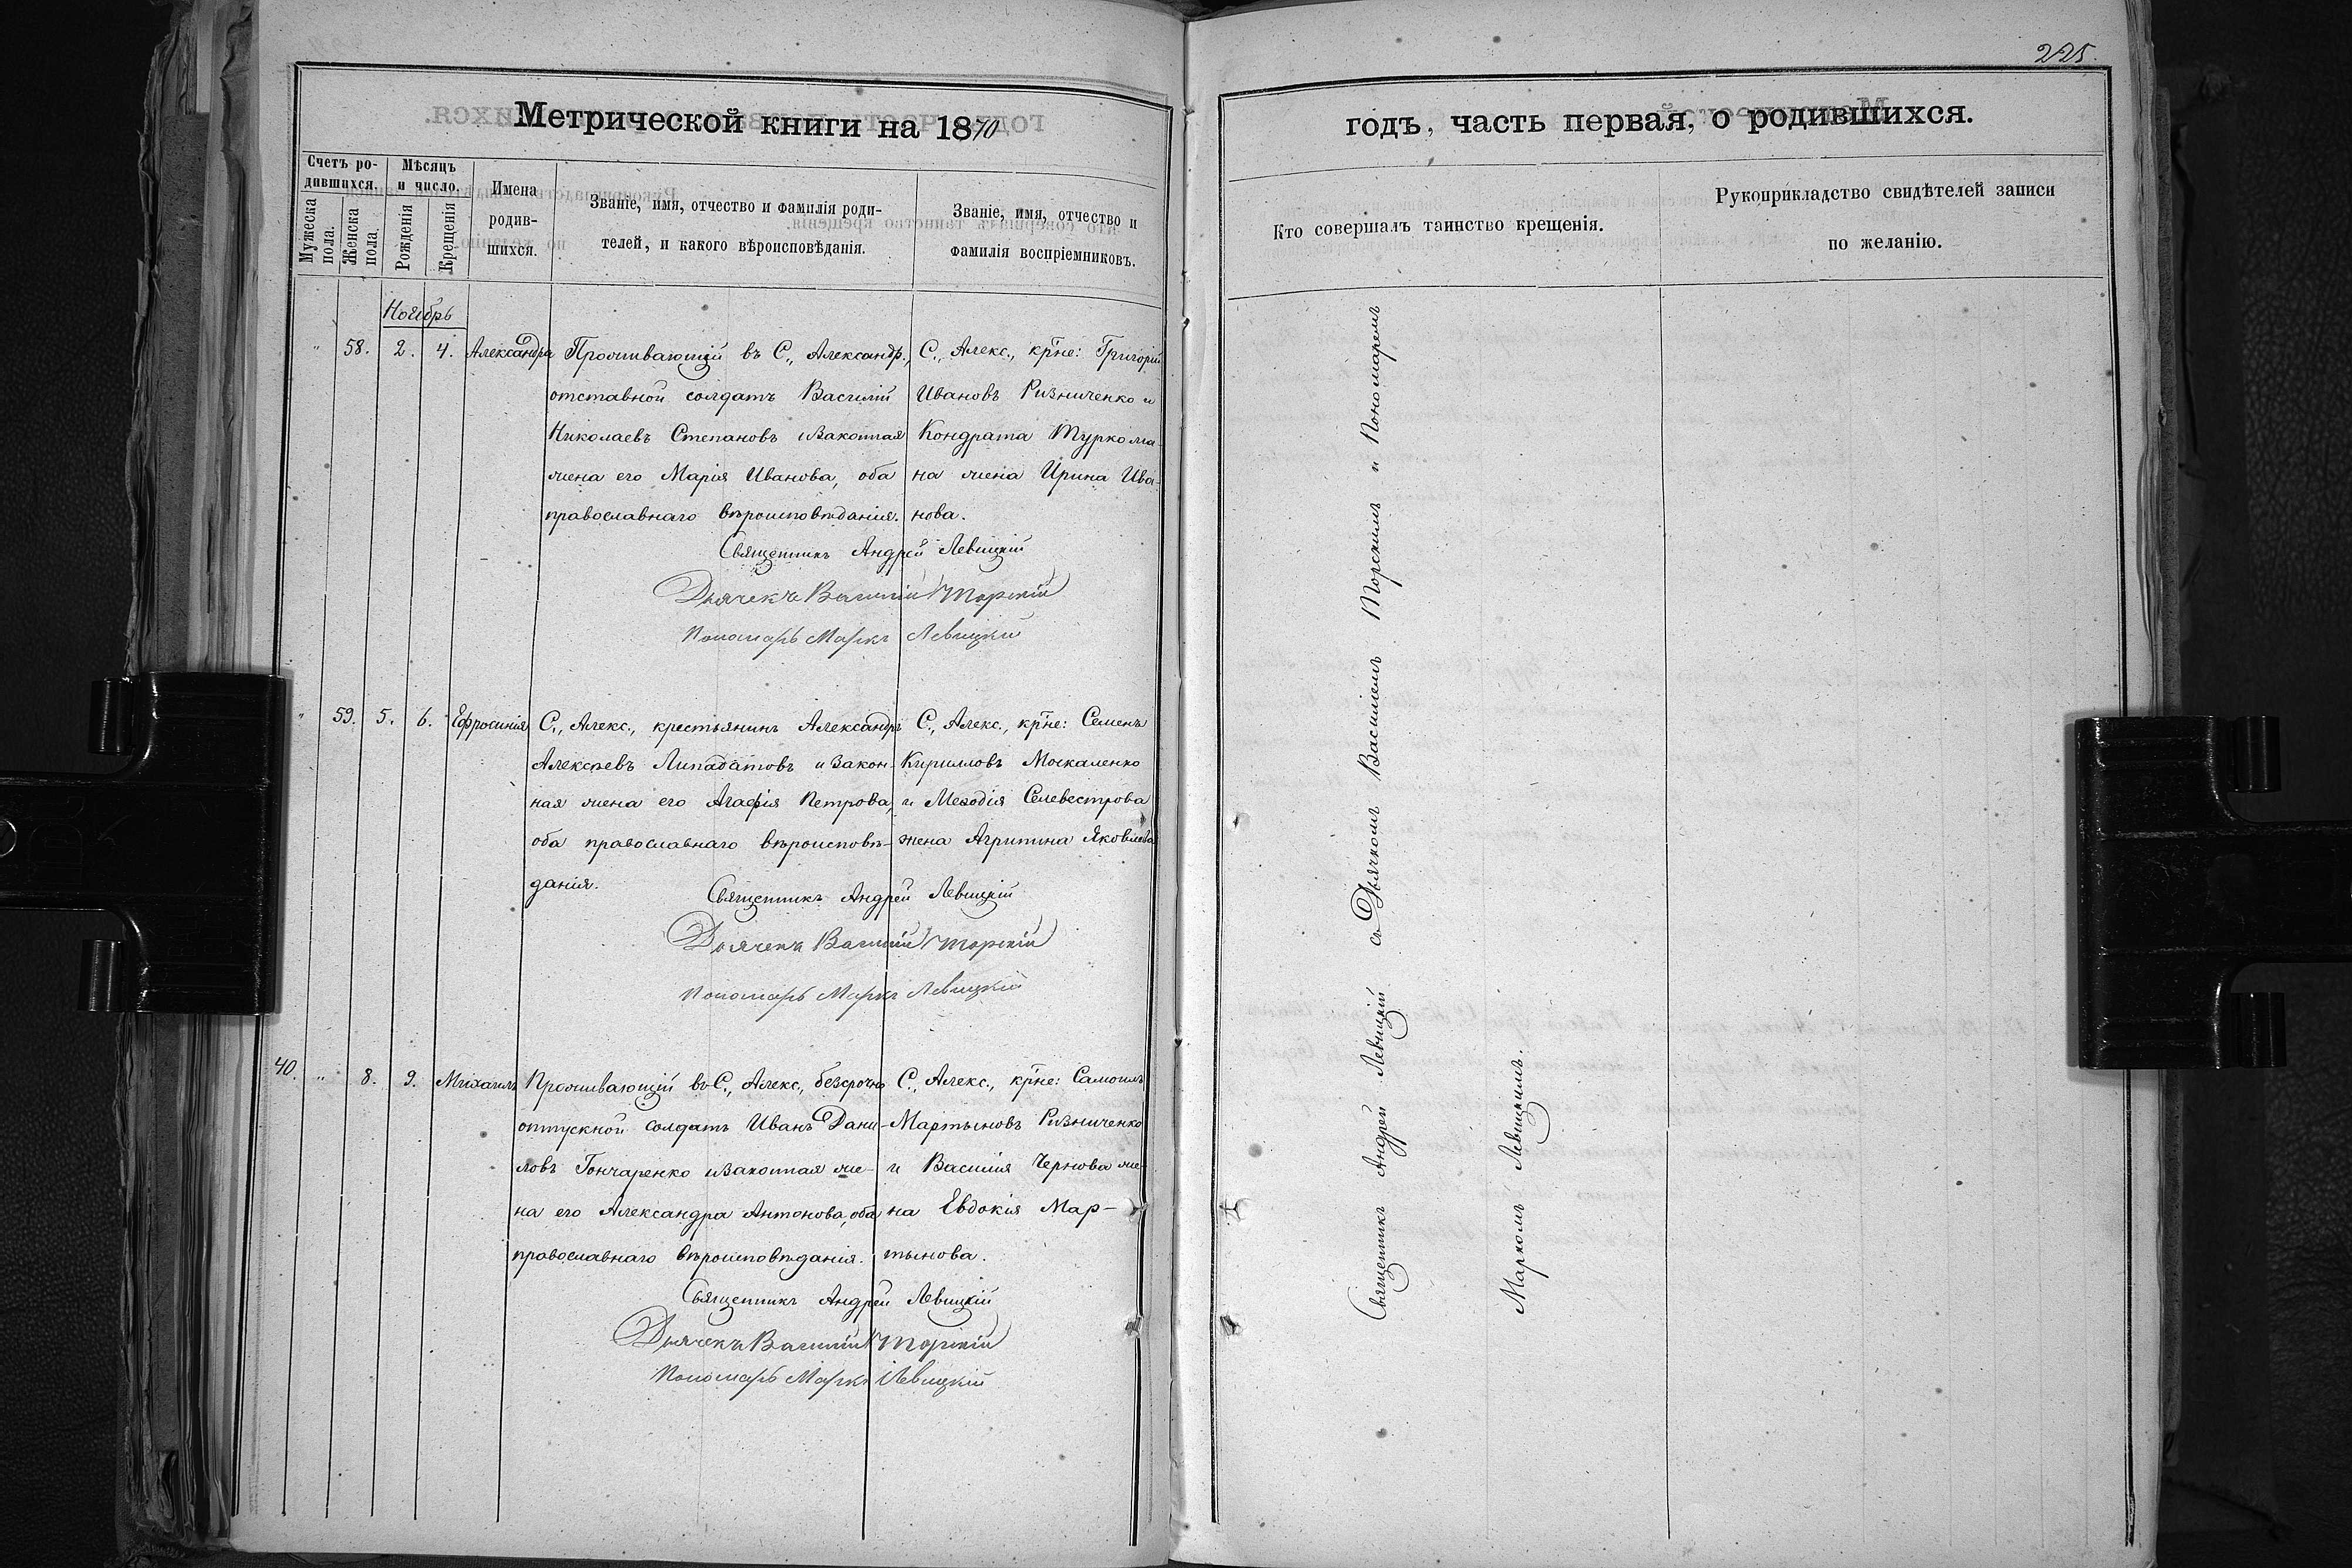 225.
Метрической книги на 1870
годъ, часть первая, о родившихся.
Счетъ ро-
дившихся.
Мужеска пола.
Женска пола.
Мѣсяцъ
и число.
Рожденія
Крещенія
Имена
родив-
шихся.
Званіе, имя, отчество и фамилія роди-
телей, и какого вѣроисповѣданія.
Званіе, имя, отчество и
фамилія воспріемниковъ.
Кто совершалъ таинство крещенія.
Рукоприкладство свидѣтелей записи
по желанію.
Ноябрь
" 58. 2. 4. Александра
Проживающій въ С., Александр.,
отставной солдатъ Василій
Николаевъ Степановъ и законная
жена его Марія Иванова, оба
православнаго вѣроисповѣданія.
С., Алекс., кр̅не: Григорій
Ивановъ Ризниченко и
Кондрата Туркома-
на жена Ирина Ива-
нова.
Священникъ Андрей Левицкій
Дьячекъ Василій Торскій
Пономарь Маркъ Левицкій
" 59. 5. 6. Ефросинія
С., Алекс., крестьянинъ Александръ
Алексѣевъ Липадатовъ и закон-
ная жена его Агафія Петрова,
оба православнаго вѣроисповѣ-
данія.
С., Алекс., кр̅не: Семенъ
Кирилловъ Москаленко
и Меѳодія Селевестрова
жена Агрипина Яковлева
Священникъ Андрей Левицкій
Дьячекъ Василій Торскій
Пономарь Маркъ Левицкій
40. " 8. 9. Михаилъ
Проживающій въ С., Алекс., безсрочно
отпускной солдатъ Иванъ Дани-
ловъ Гончаренко и законная же-
на его Александра Антонова, оба
православнаго вѣроисповѣданія.
С., Алекс., кр̅не: Самоилъ
Мартыновъ Ризниченко
и Василія Чернова же-
на Евдокія Мар-
тынова.
Священникъ Андрей Левицкій
Дьячекъ Василій Торскій
Пономарь Маркъ Левицкій
Священникъ Андрей Левицкій съ Дьячкомъ Василіемъ Торскимъ и Пономаремъ
Маркомъ Левицкимъ.